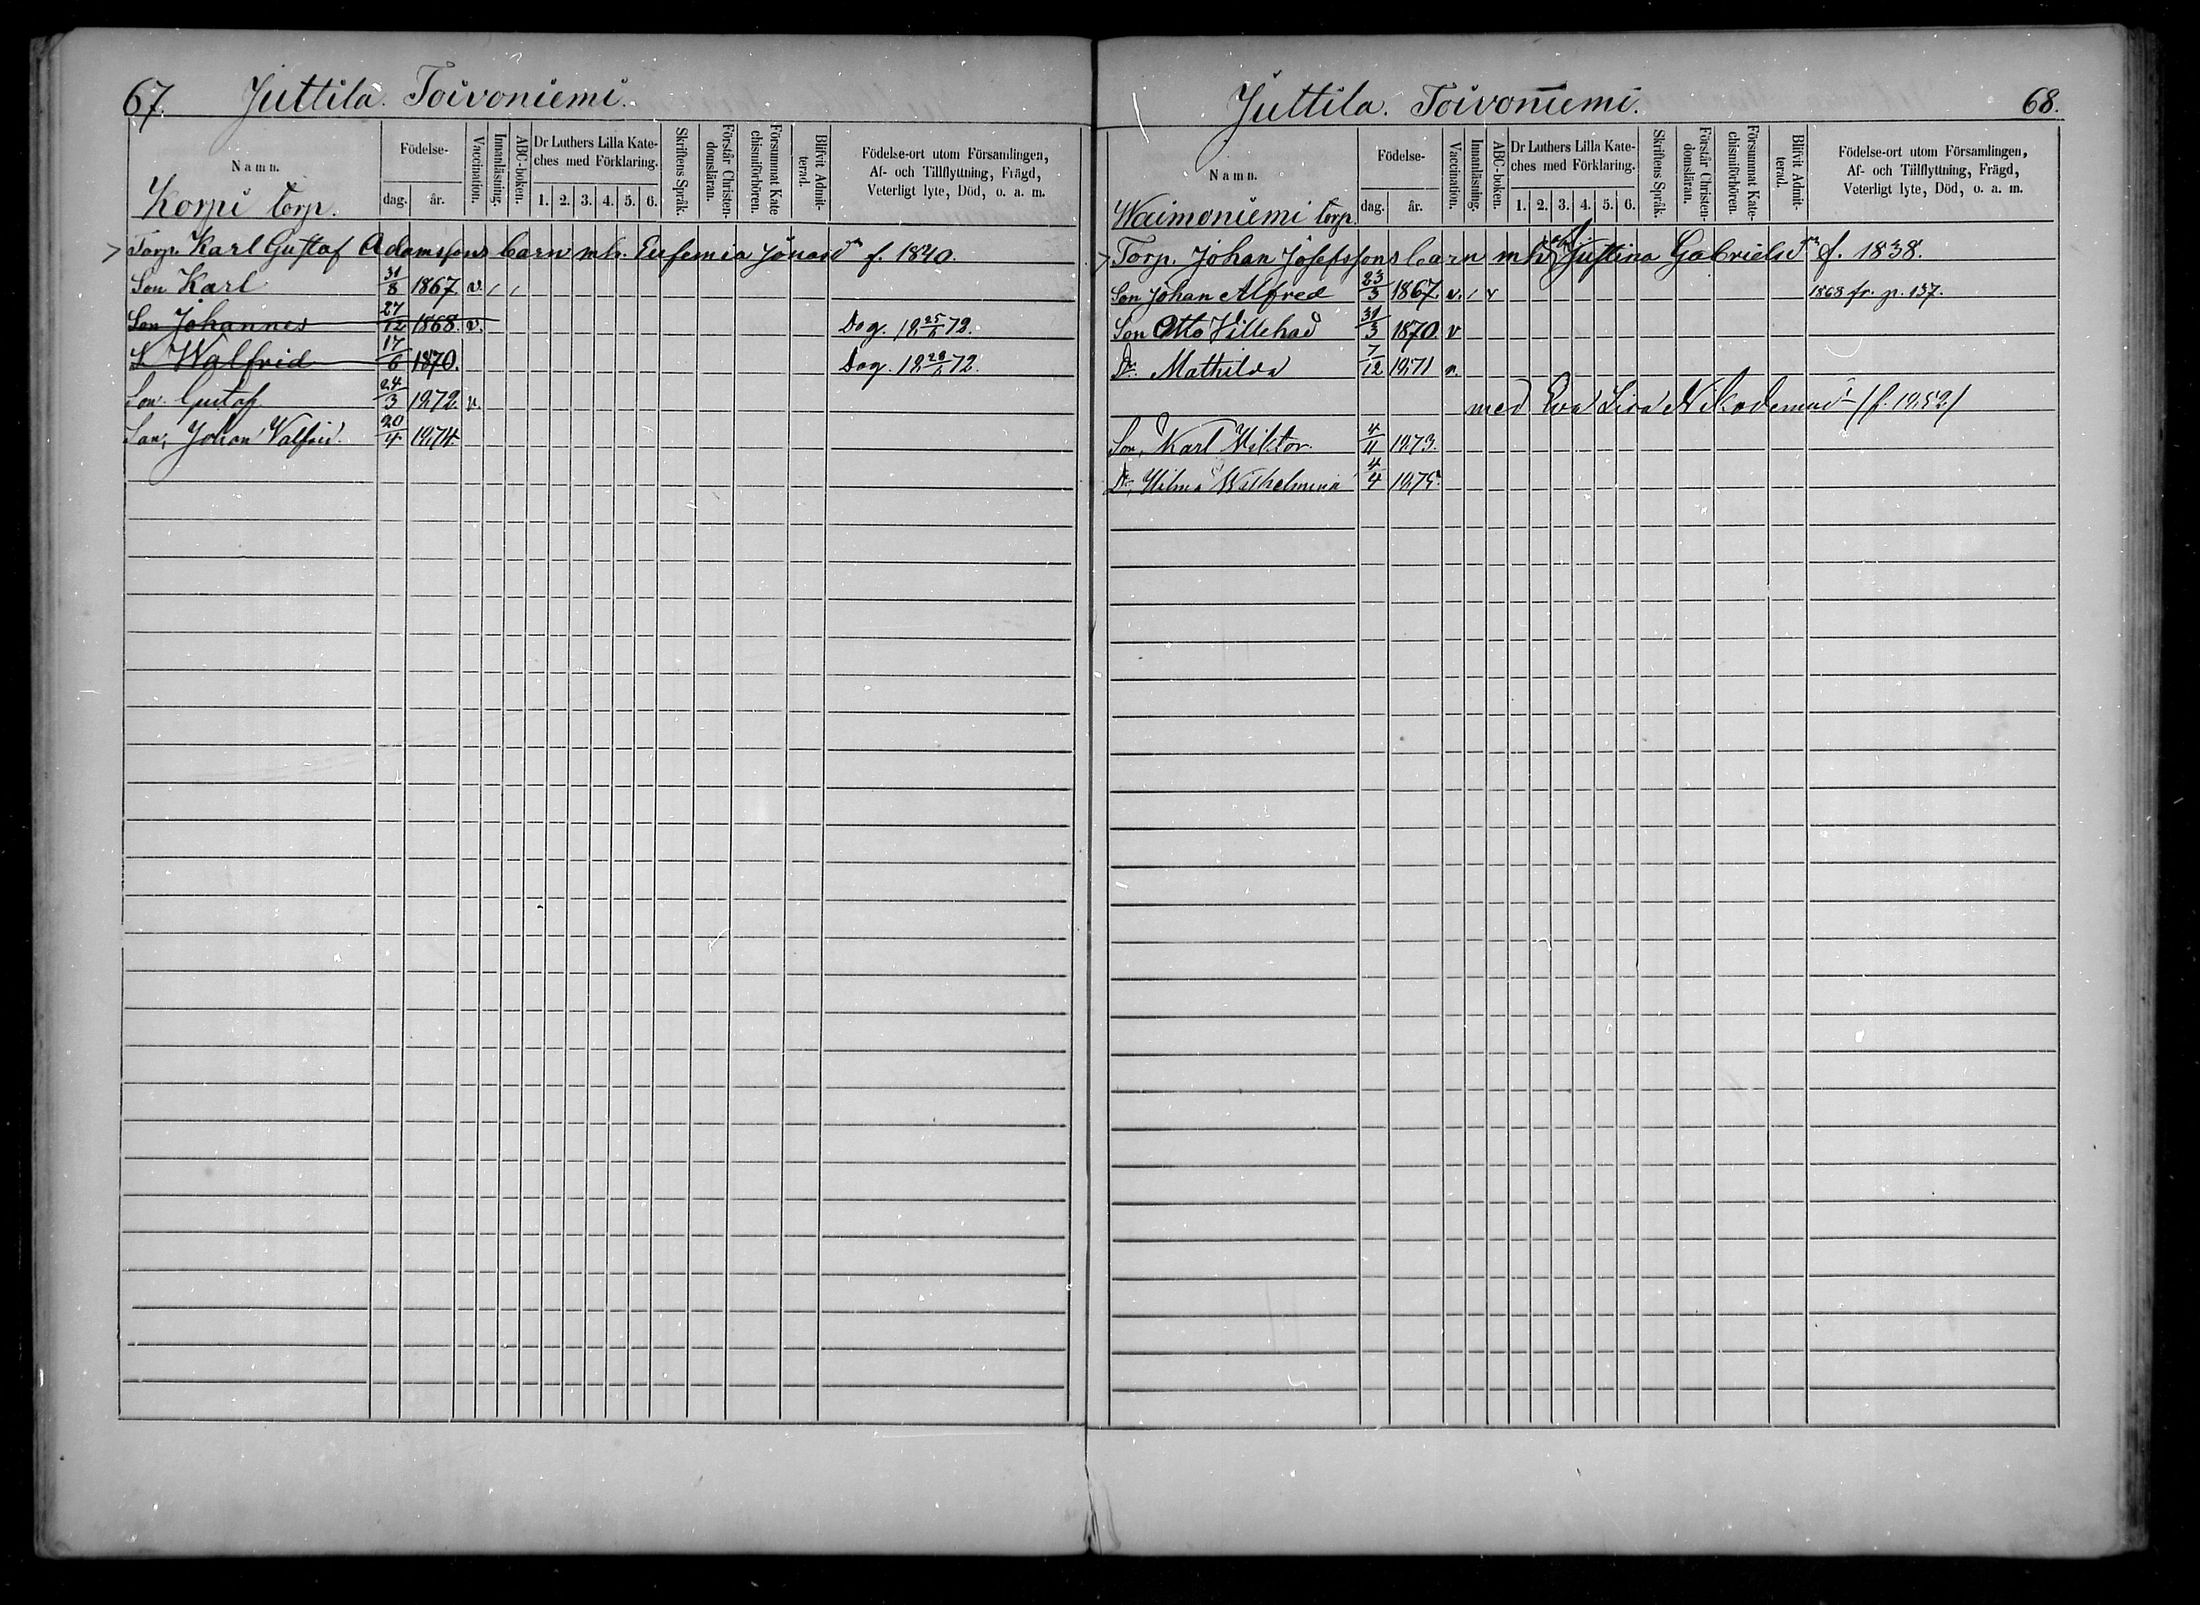 67. Juttila. Toivoniemi.
Namn.
Födelse-
dag. år.
Vaccination.
Innanläsning.
ABC-boken.
Dr Luthers Lilla Kate-
ches med Förklaring.
1. 2. 3. 4. 5. 6.
Skriftens Språk.
Förstår Christen-
domsläran.
Försummat Kate
chismiförhören.
Blifvit Admit-
terad.
Födelse-ort utom Församlingen,
Af- och Tillflyttning, Frägd,
Veterligt lyte, Död, o. a. m.
Korpi torp.
Torp. Karl Gustaf Adamssons barn m. h. Eufemia Jönasdr f. 1840.
Son Karl 31/8 1867 v. / /
Son Johannes 27/12 1868. v. Dog. 18 25/5 72.
S. Walfrid 17/6 1870. Dog. 18 72.
Son. Gustaf 24/3 1872. v.
Son, Johan Valfrid. 20/4 1874.
Juttila. Toivoniemi. 68.
Namn.
Födelse-
dag. år.
Vaccination.
Innanläsning.
ABC-boken.
Dr Luthers Lilla Kate-
ches med Förklaring.
1. 2. 3. 4. 5. 6.
Skriftens Språk.
Förstår Christen-
domsläran.
Försummat Kate-
chismiförhören.
Blifvit Admit-
terad.
Födelse-ort utom Församlingen,
Af- och Tillflyttning, Frägd,
Veterligt lyte, Död, o. a. m.
Waimoniemi torp.
Torp. Johan Josefssons barn m. h. Justina Gabrielsdr f. 1838.
Son Johan Alfred 23/3 1867. v. / v 1868 fr. p. 137.
Son Otto Villehad 31/3 1870. v
Dr. Mathilda 7/12 1871 v.
med Eva Lisa Nikodemusdr (f. 1852)
Son, Karl Viktor 4/11 1873.
Dr, Hilma Wilhelmina 4/4 1875.